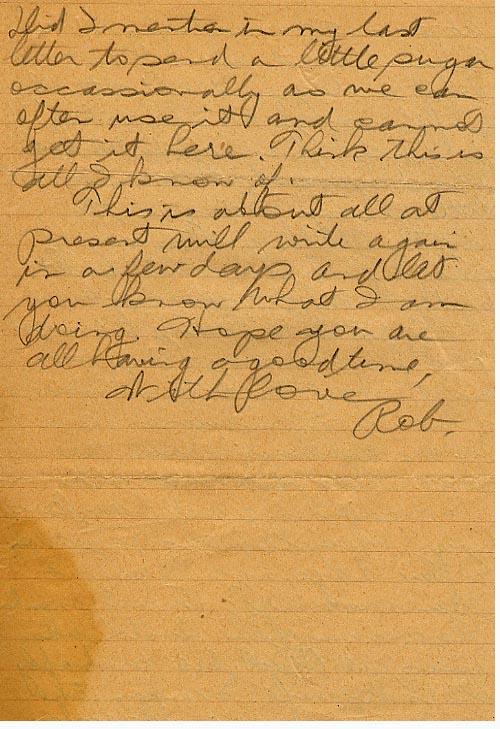 Did I mention in my last
letter to send a little sugar
occassionally as we can
often use it and cannot
get it here. Think this is
all I know of.
This is about all at
present will write again
in a few days and let
you know what I am
doing. Hope you are
all having a good time,
With love
Rob.